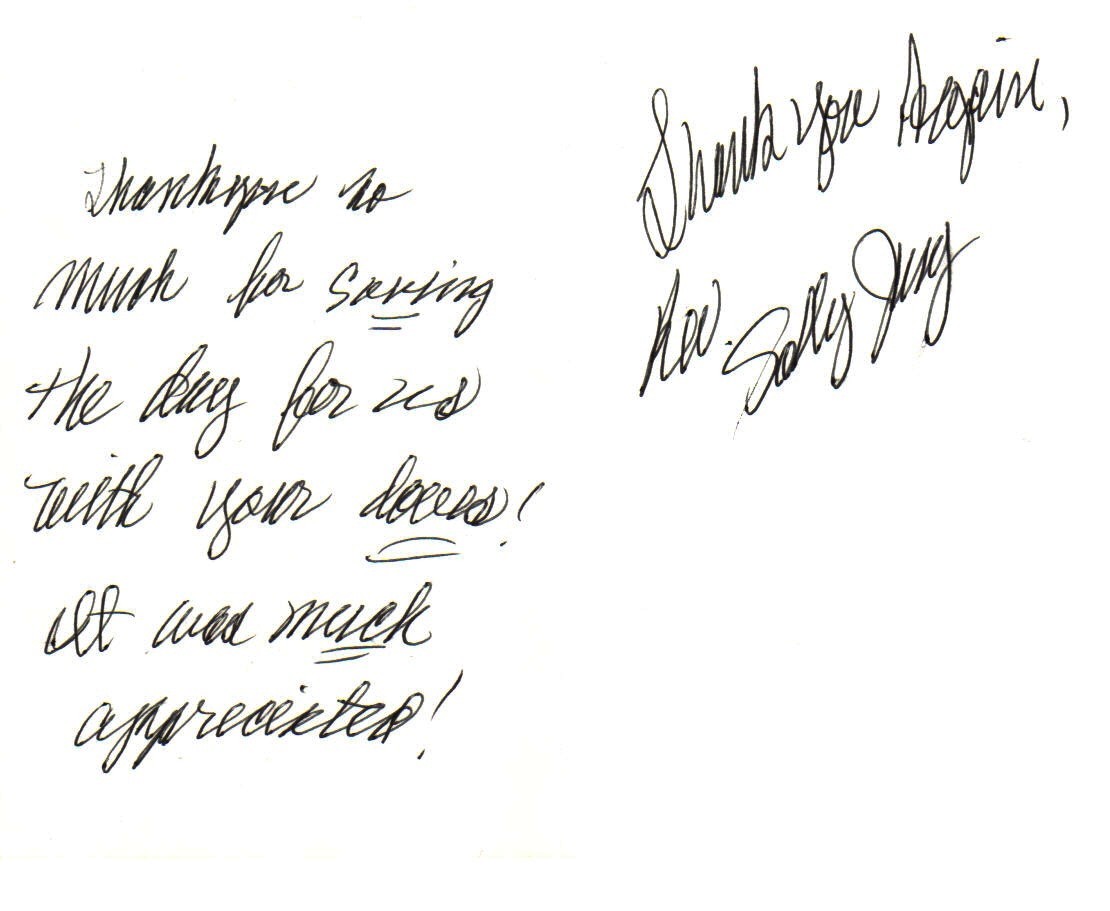 Thankyou so
much for saving
the day for us
with your doves!
It was much
appreciated!
Thank you Again,
Rev. Sally Jung